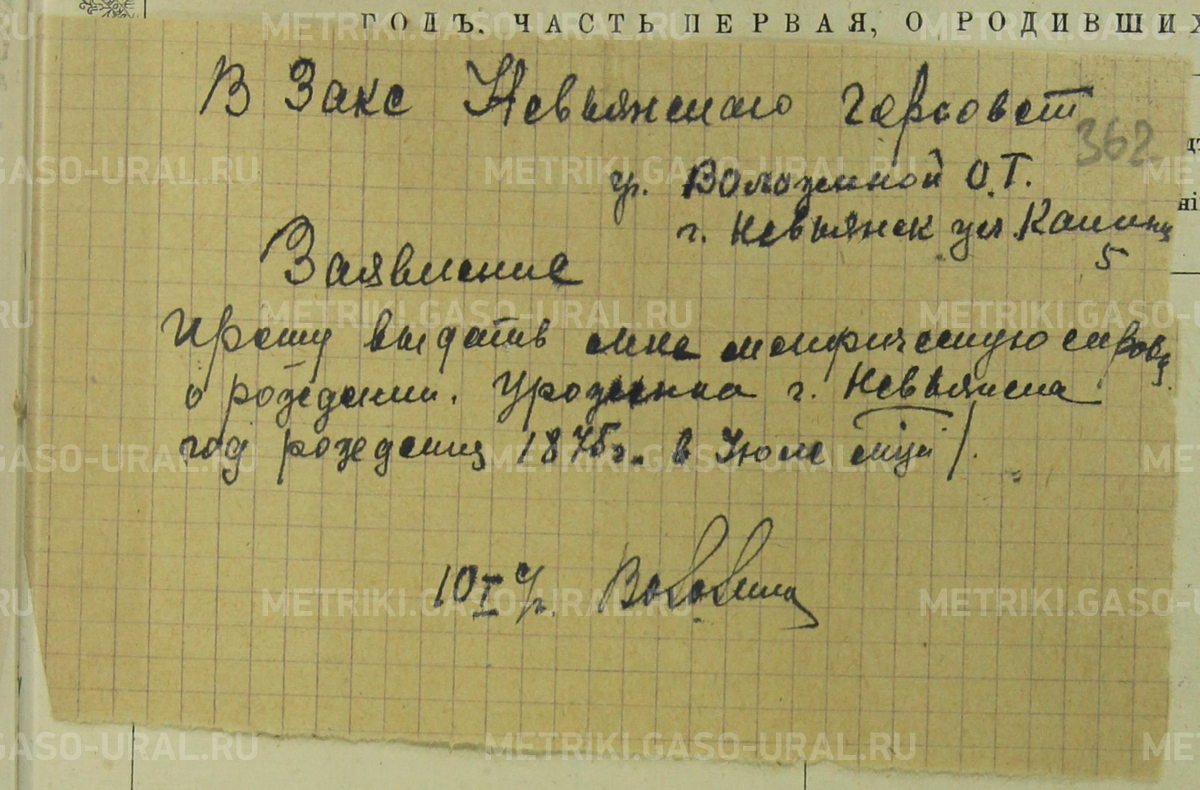 ГОДЪ. ЧАСТЬ ПЕРВАЯ, О РОДИВШИХ
В Закс Невьянскаго горсовет
362
гр. Воложиной О.Т.
г. Невьянск ул Калин
5
Заявление
Прошу выдать мне метрическую справ
о рождении. Уроженка г. Невьянска
год рождения 1875г. в Июле м-це
10 I
METRIKI.GASO-URAL.RU